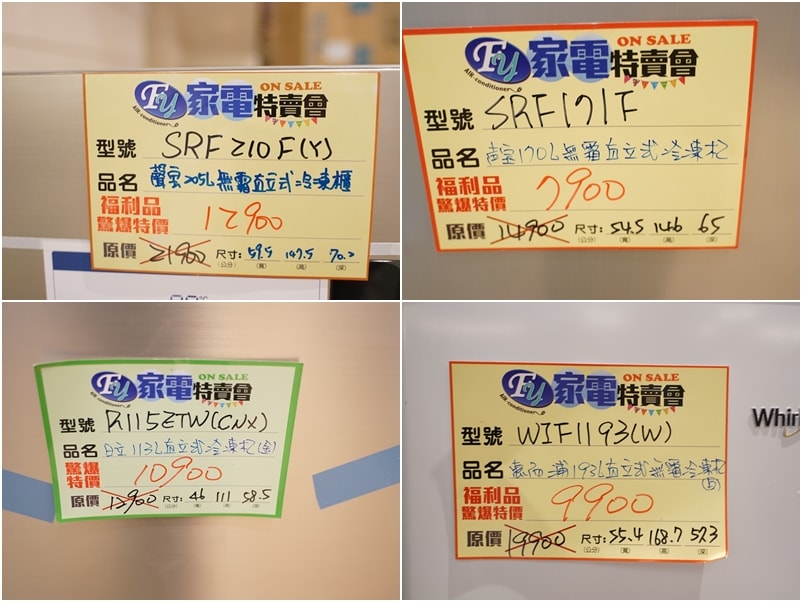 Fy 家電特賣會 ON SALE
AIR-conditioner
型號 SRF210F(Y)
品名 聲宝205L無霜直立式冷凍櫃
福利品
驚爆特價 12900
原價 21900 尺寸: 59.5 147.5 70.2
(公分) (寬) (高) (深)
°C
Fy 家電特賣會 ON SALE
AIR-conditioner
型號 SRF171F
品名 声宝170L無霜直立式冷凍柜
福利品
驚爆特價 7900
原價 14900 尺寸: 54.5 146 65
(公分) (寬) (高) (深)
Fy 家電特賣會 ON SALE
AIR-conditioner
型號 R115ZTW(CNX)
品名 日立113L直立式冷凍柜(金)
驚爆
特價 10900
原價 12900 尺寸: 46 111 58.5
(公分) (寬) (高) (深)
Fy 家電特賣會 ON SALE
AIR-conditioner
型號 WIF1193(W)
品名 惠而浦193L直立式無霜冷凍柜
(白)
福利品
驚爆特價 9900
原價 19900 尺寸: 55.4 168.7 57.3
(公分) (寬) (高) (深)
Whir